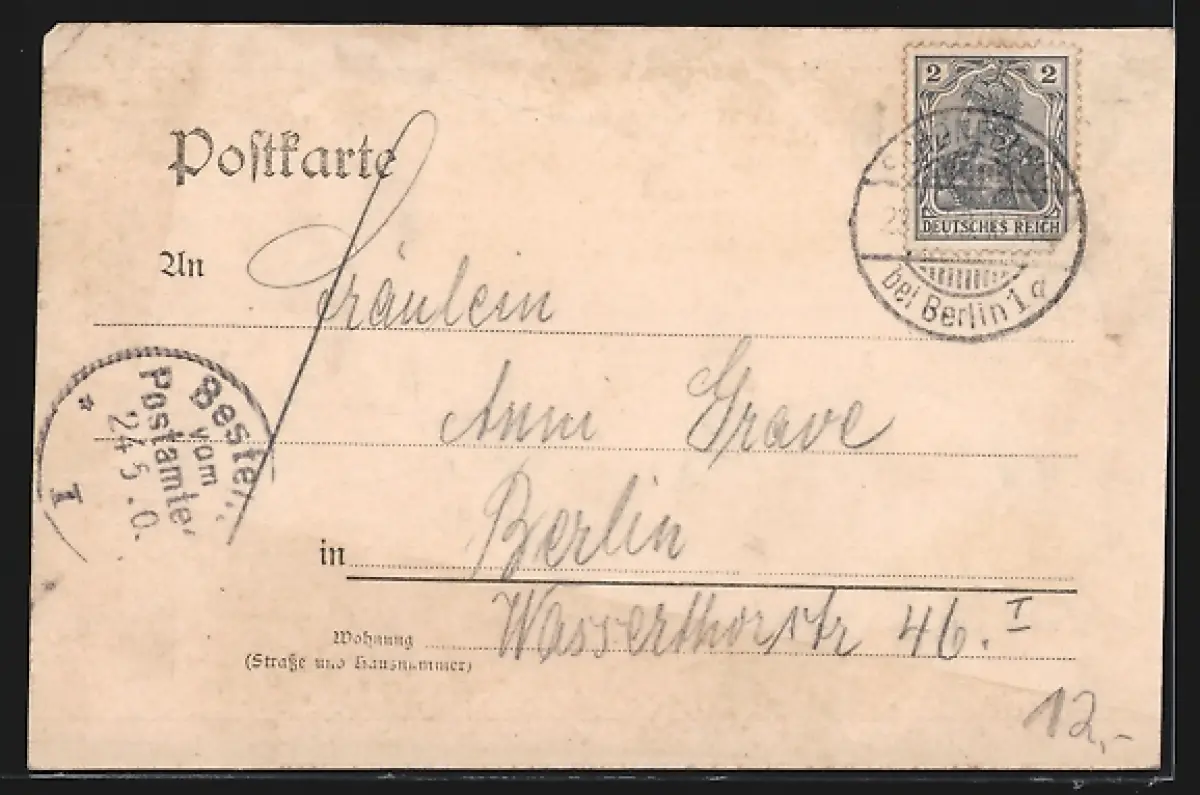 Postkarte
2 2
DEUTSCHES REICH
bei Berlin 1 a
An Fräulein
Anni Grave
Bestellt
vom
Postamte
24 5. 0.
I
in Berlin
Wohnung Wasserthorstr 46. I
(Straße und Hausnummer)
12,-